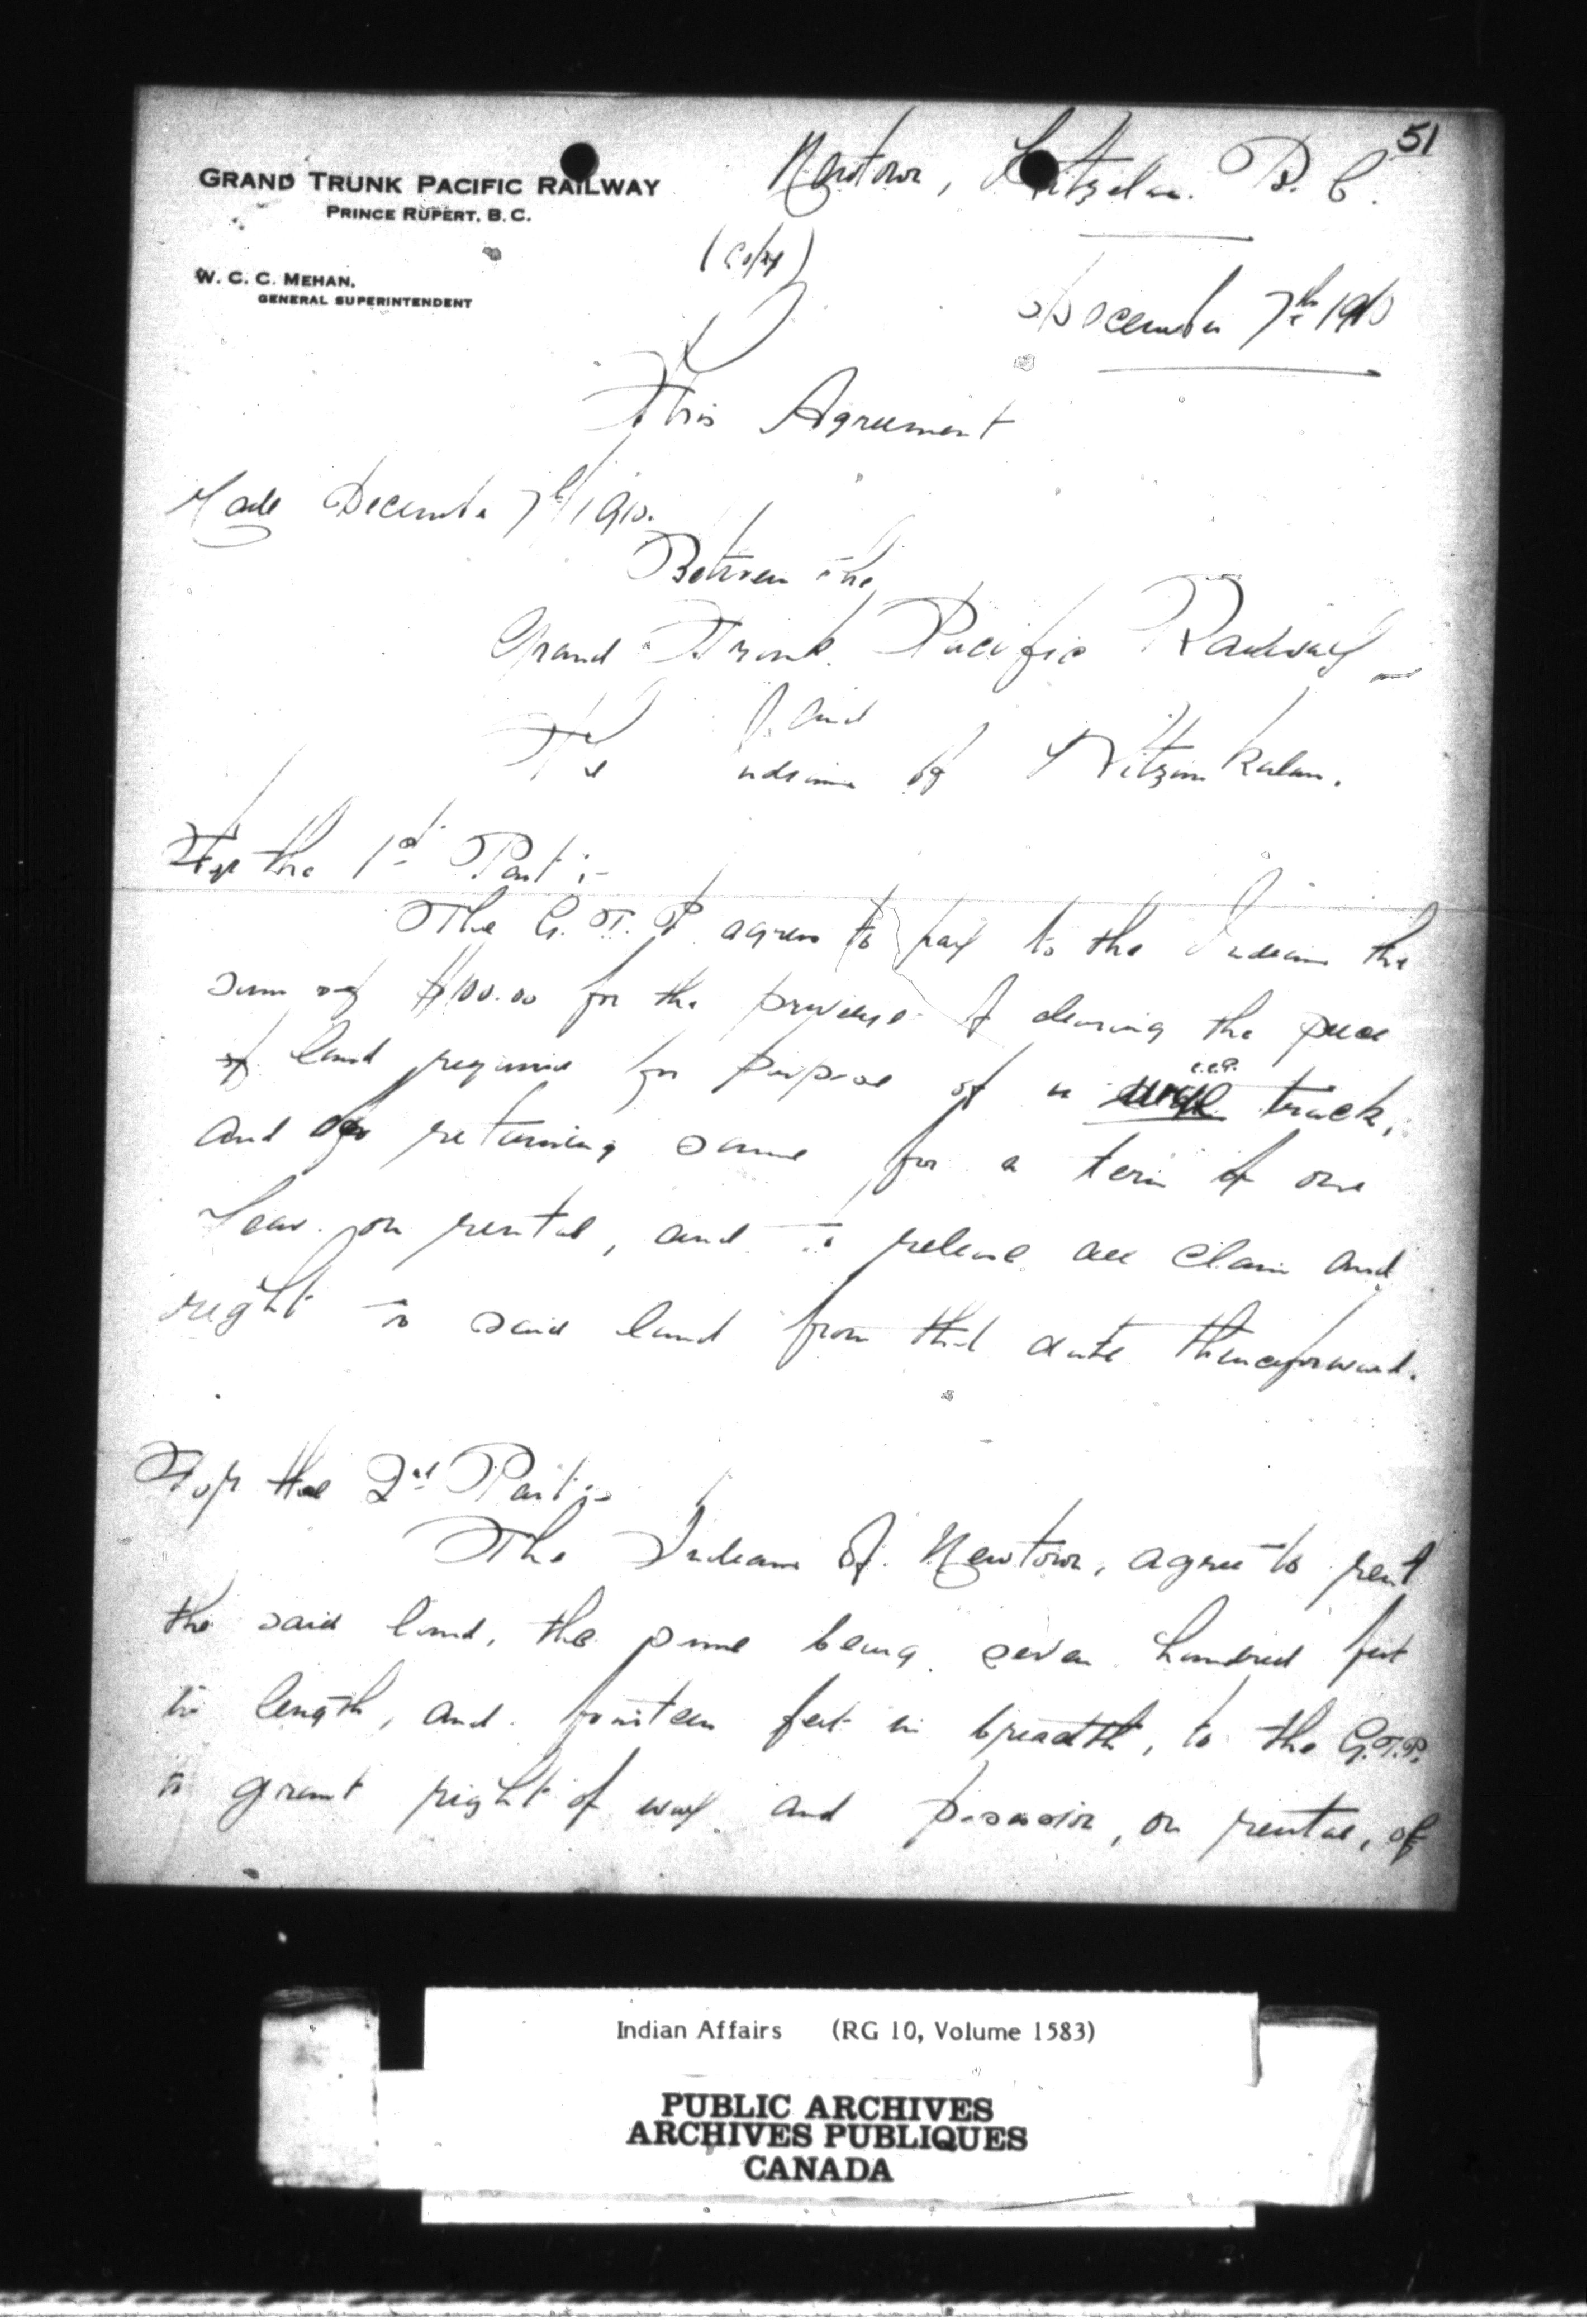 51
GRAND TRUNK PACIFIC RAILWAY
PRINCE RUPERT, B.C.
Newtown, Kitzelas. B. C.
(Copy)
W. C. C. MEHAN,
GENERAL SUPERINTENDENT
December 7th 1910
This Agreement
Made December 7th 1910.
Between the
Grand Trunk Pacific Railway
and
The Indians of
For the 1st Part :-
The G. T. P. agrees to pay to the Indians the
sum of $100.00 for the privilege of clearing the piece
of land required for purpose of a track,
and of returning same for a term of one
Year on rental, and to release all claim and
right to said land from that date thenceforward.
For the 2nd Part :-
The Indians of Newtown, agree to rent
the said land, the same being seven hundred feet
in length, and fourteen feet in breadth, to the G.T.P.
to grant right of way and possession, on rental, of
Indian Affairs (RG 10, Volume 1583)
PUBLIC ARCHIVES
ARCHIVES PUBLIQUES
CANADA